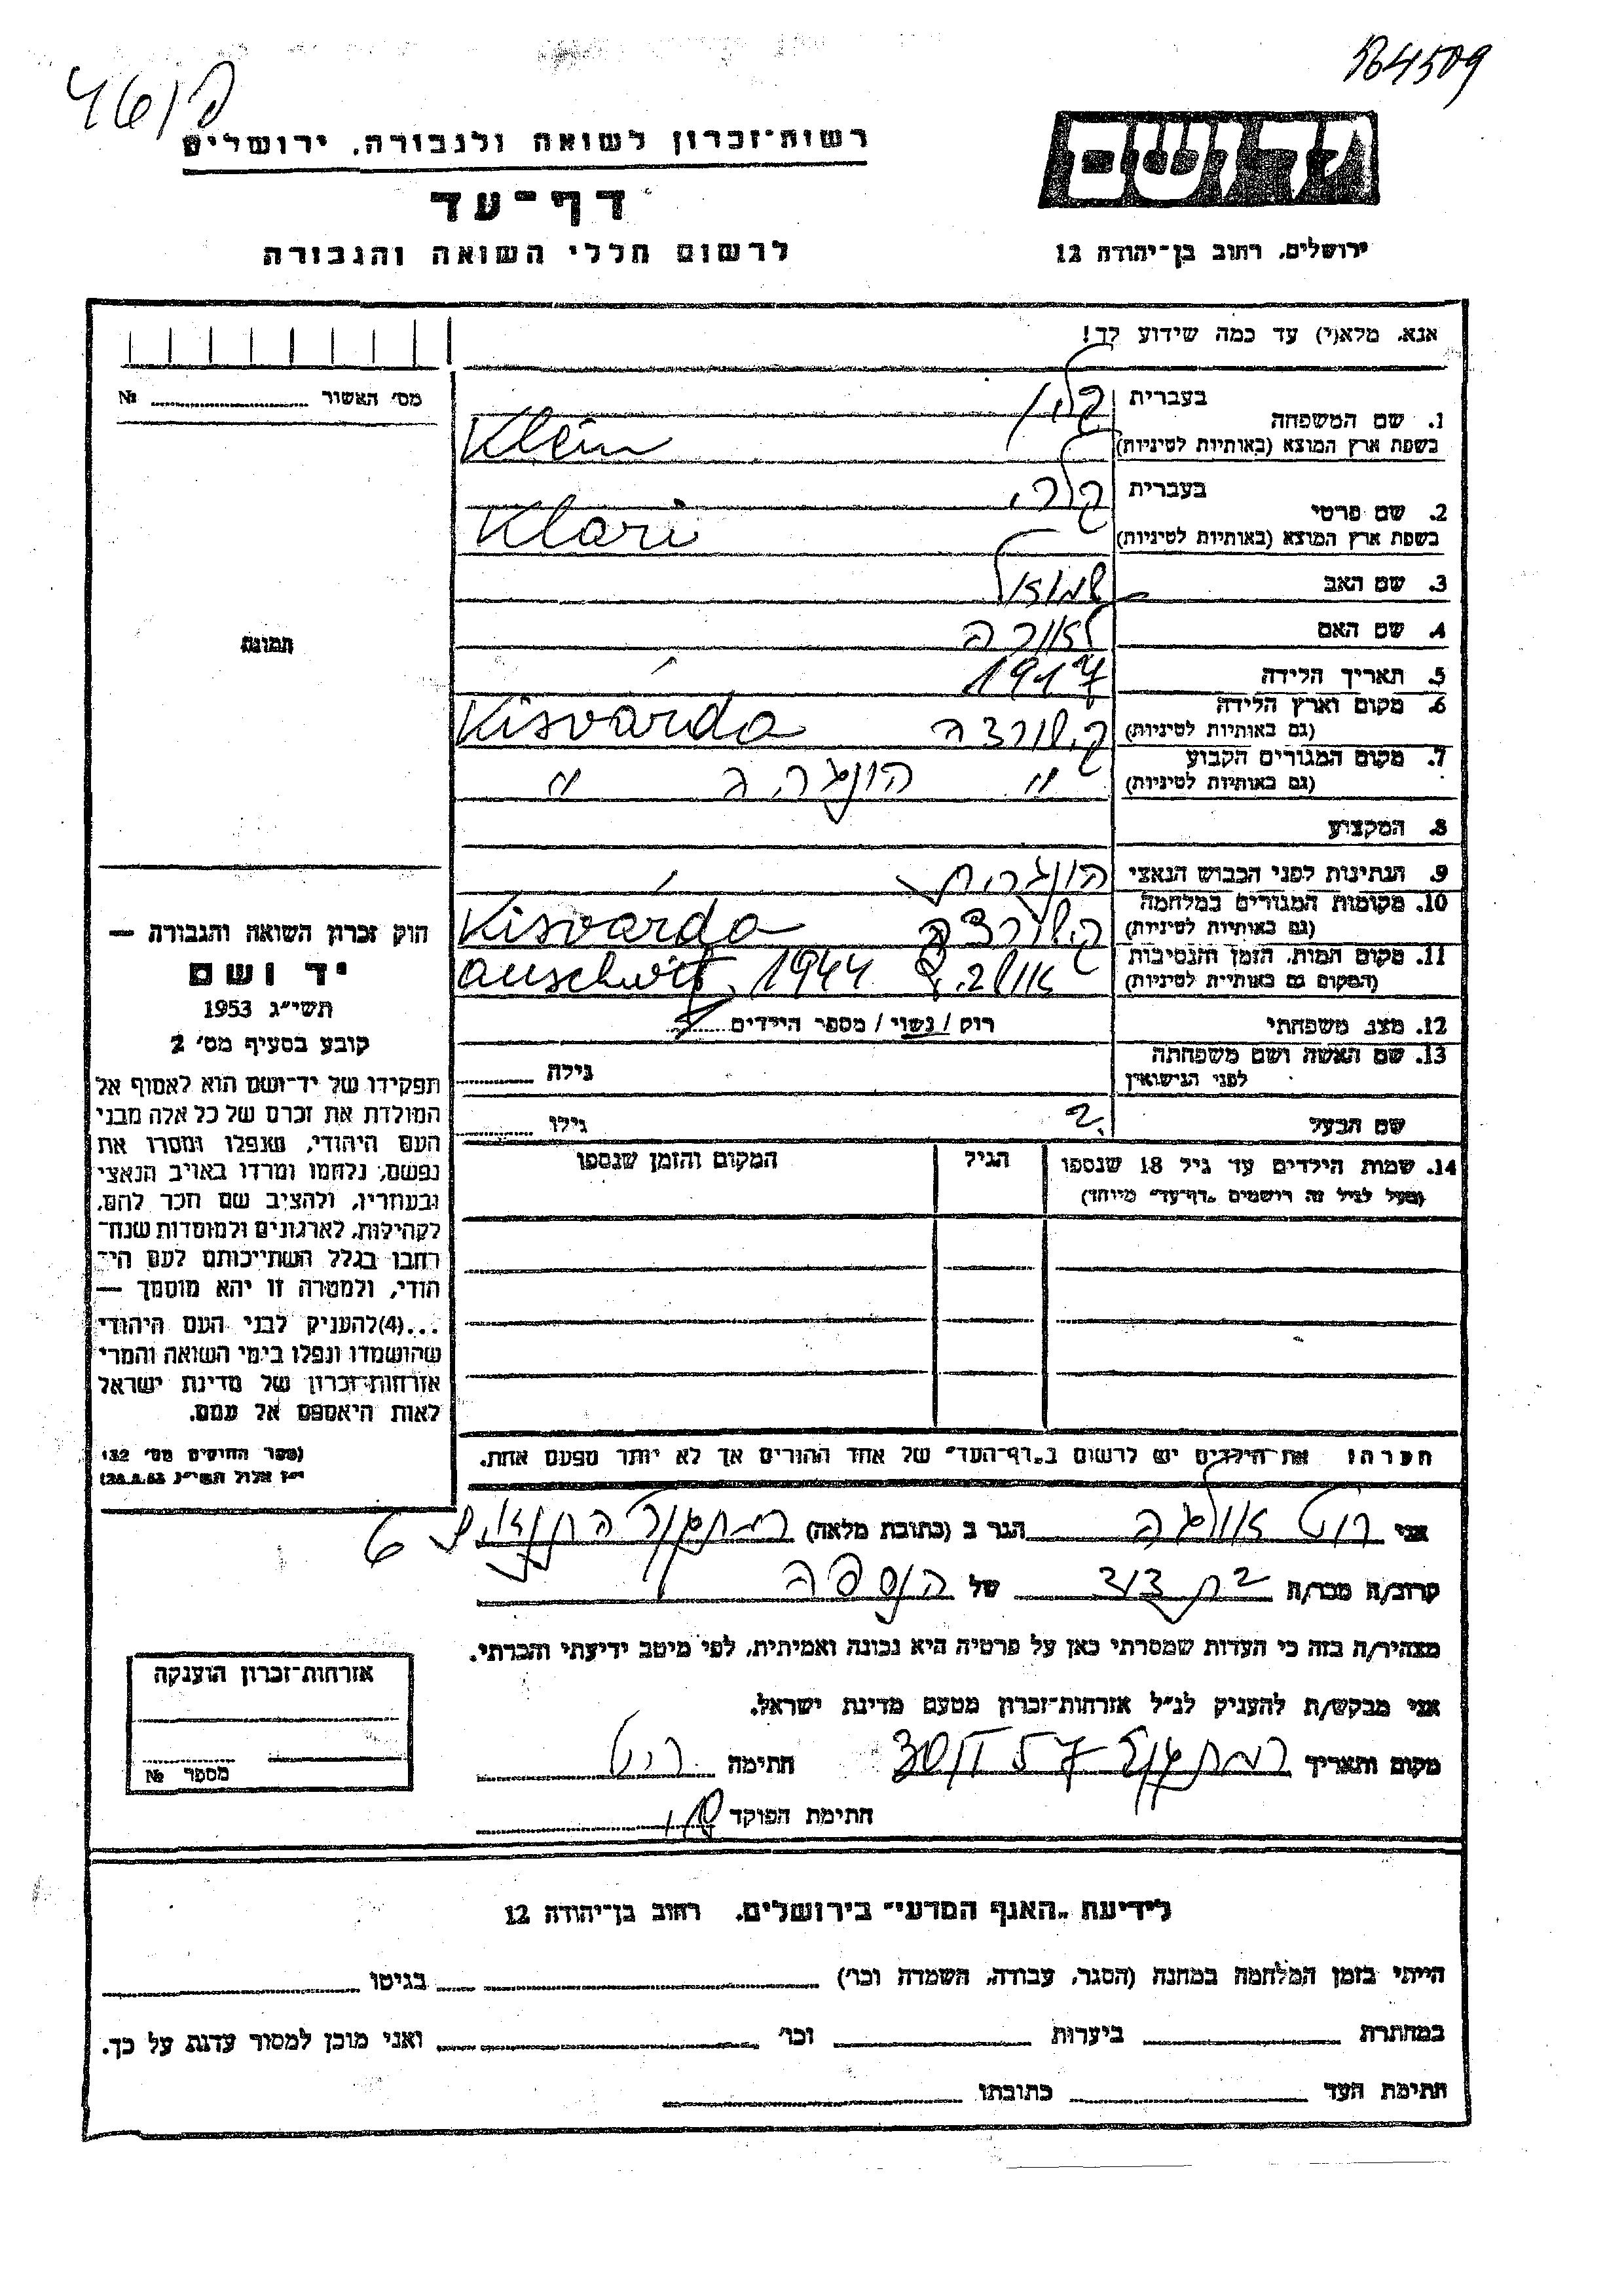 164509
קלין
רשות־זכרון לשואה ולגבורה, ירושלים
דף־עד
לרשום חללי השואה והגבורה
ירושלים, רחוב בן־יהודה 12
אנא, מלא(י) עד כמה שידוע לך!
מס׳ האשור № 
1. שם המשפחה
בעברית קליין
בשפת ארץ המוצא (באותיות לטיניות) Klein
2. שם פרטי
בעברית קלרי
בשפת ארץ המוצא (באותיות לטיניות) Klari
3. שם האב שמואל
4. שם האם לאורה
5. תאריך הלידה 1917
6. מקום וארץ הלידה (גם באותיות לטיניות) קישורדה Kisvárda
7. מקום המגורים הקבוע (גם באותיות לטיניות) " הונגריה "
8. המקצוע
9. הנתינות לפני הכבוש הנאצי הונגרית
10. מקומות המגורים במלחמה (גם באותיות לטיניות) קישורדה Kisvárda
11. מקום המות, הזמן והנסיבות (המקום גם באותיות לטיניות) אושביץ 1944 Auschwitz
12. מצב משפחתי רוק / נשוי / מספר הילדים
13. שם האשה ושם משפחתה לפני הנישואין גילה
שם הבעל ? גילו
14. שמות הילדים עד גיל 18 שנספו הגיל המקום והזמן שנספו
(מעל לגיל זה רושמים "דף־עד" מיוחד)
תמונה
חוק זכרון השואה והגבורה —
יד ושם
תשי״ג 1953
קובע בסעיף מס׳ 2
תפקידו של יד־ושם הוא לאסוף אל
המולדת את זכרם של כל אלה מבני
העם היהודי, שנפלו ומסרו את
נפשם, נלחמו ומרדו באויב הנאצי
ובעוזריו, ולהציב שם וזכר להם,
לקהילות, לארגונים ולמוסדות שנח־
רבו בגלל השתייכותם לעם הי־
הודי, ולמטרה זו יהא מוסמך —
...(4)להעניק לבני העם היהודי
שהושמדו ונפלו בימי השואה והמרי
אזרחות־זכרון של מדינת ישראל
לאות היאספם אל עמם.
(ספר החוקים מס׳ 132
י״ז אלול תשי״ג 28.8.53)
הערה: את הילדים יש לרשום ב"דף־העד" של אחד ההורים אך לא יותר מפעם אחת.
אני רוט אולגה הגר ב (כתובת מלאה) רמת גן
קרוב/ה מכר/ה בת דוד של הנספה
מצהיר/ה בזה כי העדות שמסרתי כאן על פרטיה היא נכונה ואמיתית, לפי מיטב ידיעתי והכרתי.
אני מבקש/ת להעניק לנ״ל אזרחות־זכרון מטעם מדינת ישראל.
מקום ותאריך 57 חתימה רוט
חתימת הפוקד
אזרחות־זכרון הוענקה
מספר №
לידיעת "האגף המדעי" בירושלים, רחוב בן־יהודה 12
הייתי בזמן המלחמה במחנה (הסגר, עבודה, השמדה וכו׳) בגיטו
במחתרת ביערות וכו׳ ואני מוכן למסור עדות על כך.
חתימת העד כתובתו